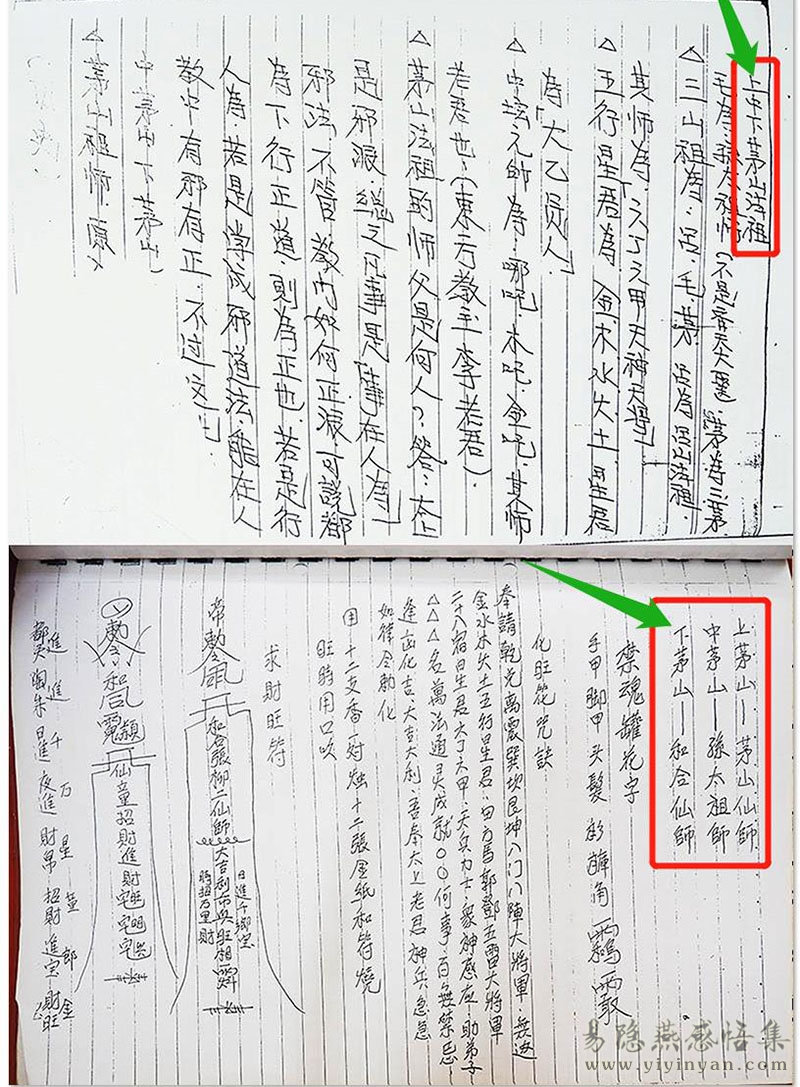 上中下茅山法祖
毛為：孫太祖師（不是齊天大聖．茅為三茅
△三山祖為：呂．毛．茅．呂為呂山法祖．
其師為：六丁六甲天神天將」
△五行星君為：金木水火土星君
為「大乙真人」
△中坛元帥為：哪吒．木吒．金吒．其师
老君也（東方教主李老君）．
△茅山法祖的师父是何人？．答：太上
是邪派．總之凡事是「事在人為」
邪法．不管．教内如何正派可說都
為下行正道則為正也．若是行
人為．若是学成邪道法．能在人
教中有邪有正．不过这
中茅山下茅山
△茅山祖师．
上茅山—茅山仙師
中茅山—孫太祖師
下茅山—和合仙師
禁魂罐花字
手甲脚甲头髮
化旺花咒訣
奉請乾兌離震巽坎艮坤八门八陣大將軍．
金水木火土五行星君．四方馬郭鄧五雷大將軍
二十八宿星君六丁六甲．天兵力士．眾神感应．助弟子
△△△名萬法通灵成就〇〇何事．百無禁忌
逢凶化吉大吉大利．吾奉太上老君神兵急急
如律令勅化
用十二支香一对烛十二張金紙和符燒
旺時用口吹
求財旺符
和合張柳二仙師
大吉利市興旺相
日進千鄉宝
時招万里財
和合
仙童招財進財
進進千万星
易隐燕感悟集
www.yiyinyan.com